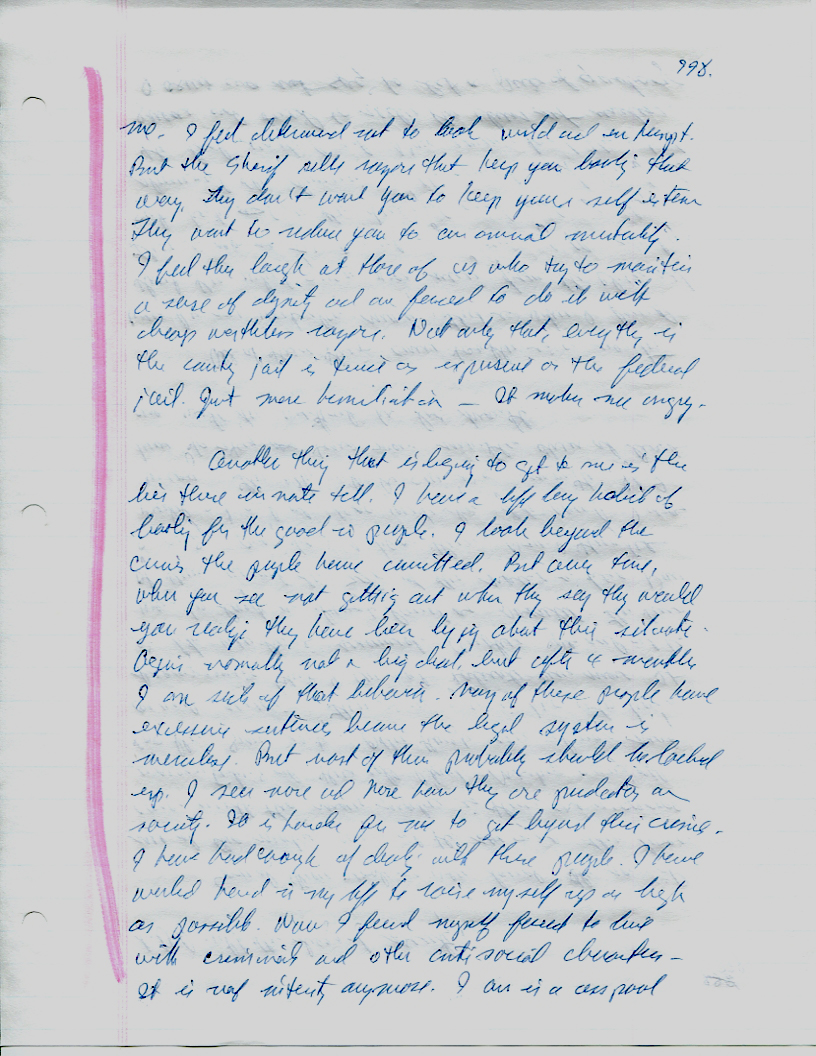 998.
me. I feel determined not to look wild and unkempt.
But the Sherif sells razors that keep you looking that
way. They don't want you to keep your self esteem
They want to reduce you to an animal mentality.
I feel they laugh at those of us who try to maintain
a sense of dignity and are forced to do it with
cheap worthless razors. Not only that, everything in
the county jail is twice as expensive as the federal
jail. Just more humiliation — It makes me angry.
Another thing that is beging to get to me is the
lies these inmate tell. I have a life long habit of
looking for the good in people. I look beyond the
crimes the people have committed. But over time,
when you see not getting out when they say they would
you realize they have been lying about their situate
normally not a big deal, but after 4 months
I am sick of that behavior. Many of these people have
excessive sentences because the legal system is
merciless. But most of them probably should be locked
up. I see more and more how they are predators on
society. It is harder for me to get beyond their crime.
I have had enough of dealing with these people. I have
worked hard in my life to raise myself up as high
as possible. Now I find myself forced to live
with criminals and other antisocial characters —
It is not interesty anymore. I am in a cesspool